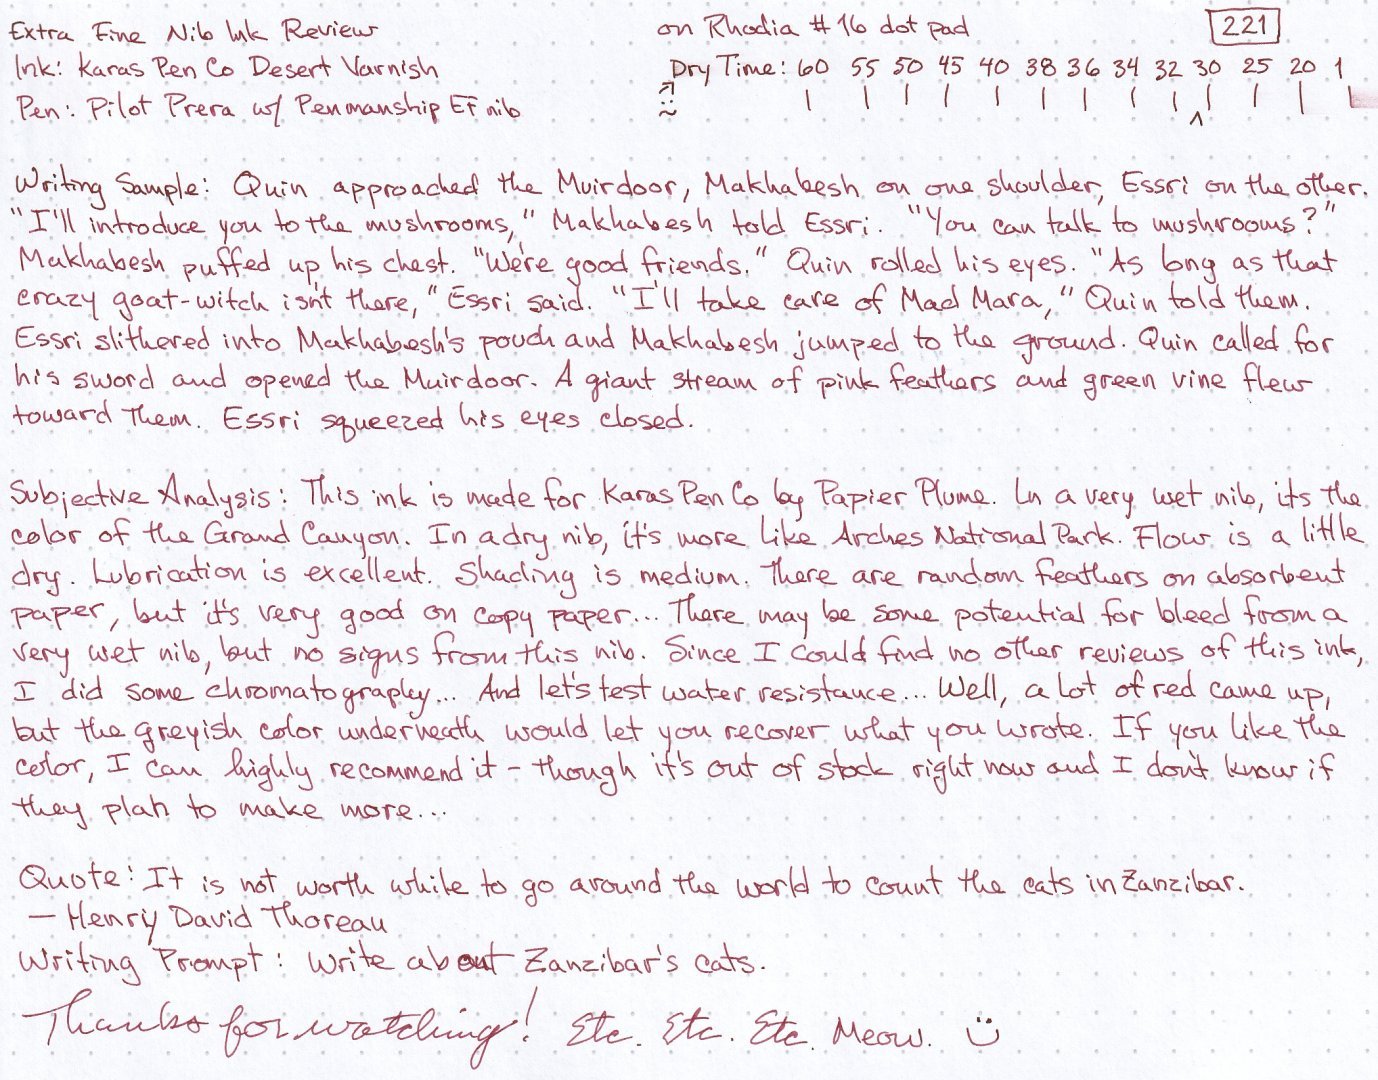 Extra Fine Nib Ink Review on Rhodia #16 dot pad 221
Ink: Karas Pen Co Desert Varnish Dry Time: 60 55 50 45 40 38 36 34 32 30 25 20 1
Pen: Pilot Prera w/ Penmanship EF nib
Writing Sample: Quin approached the Muirdoor, Makhabesh on one shoulder, Essri on the other.
"I'll introduce you to the mushrooms," Makhabesh told Essri. "You can talk to mushrooms?"
Makhabesh puffed up his chest. "We're good friends." Quin rolled his eyes. "As long as that
crazy goat-witch isn't there," Essri said. "I'll take care of Mad Mara," Quin told them.
Essri slithered into Makhabesh's pouch and Makhabesh jumped to the ground. Quin called for
his sword and opened the Muirdoor. A giant stream of pink feathers and green vine flew
toward them. Essri squeezed his eyes closed.
Subjective Analysis: This ink is made for Karas Pen Co by Papier Plume. In a very wet nib, its the
color of the Grand Canyon. In a dry nib, it's more like Arches National Park. Flow is a little
dry. Lubrication is excellent. Shading is medium. There are random feathers on absorbent
paper, but it's very good on copy paper... There may be some potential for bleed from a
very wet nib, but no signs from this nib. Since I could find no other reviews of this ink,
I did some chromatography... And let's test water resistance... Well, a lot of red came up,
but the greyish color underneath would let you recover what you wrote. If you like the
color, I can highly recommend it - though it's out of stock right now and I don't know if
they plan to make more...
Quote: It is not worth while to go around the world to count the cats in Zanzibar.
— Henry David Thoreau
Writing Prompt: Write about Zanzibar's cats.
Thanks for watching! Etc. Etc. Etc. Meow. :)